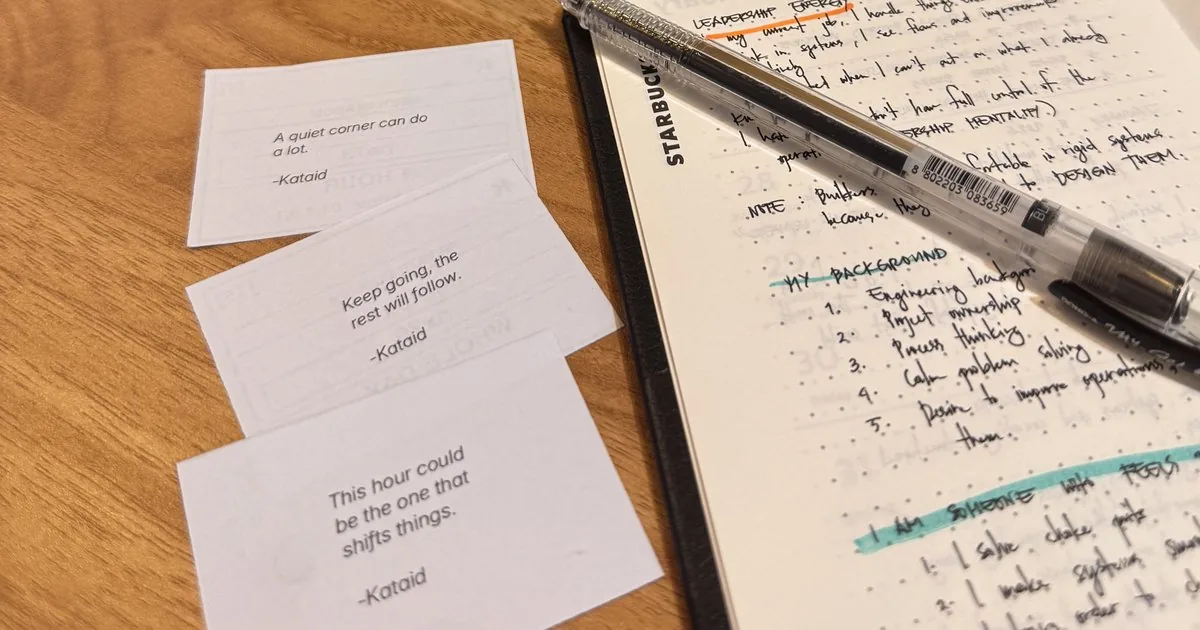 A quiet corner can do
a lot.
-Kataid
Keep going, the
rest will follow.
-Kataid
This hour could
be the one that
shifts things.
-Kataid
STARBUCKS
LEADERSHIP ENERGY
my current job, I handle things
in systems, I see flaws and improvements
when I can't act on what I already
have full control of the
MENTALITY)
rigid systems
to DESIGN THEM.
NOTE : Builders
because they
8 802203 083659
MY BACKGROUND
1. Engineering
2. Project ownership
3. Process thinking
4. Calm problem solving
5. Desire to improve operations
them.
I AM SOMEONE WHO FEELS
1. I solve choke points
2. I make systems
order to